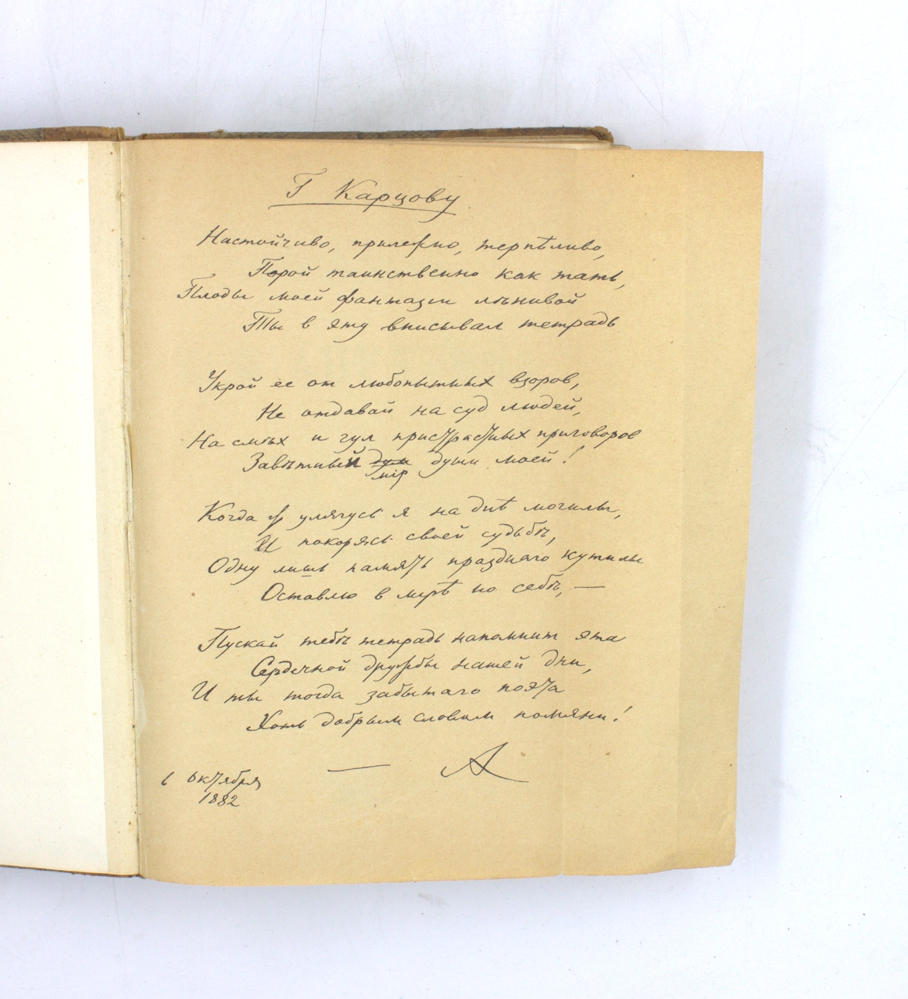 Г Карцову
Настойчиво, прилежно, терпѣливо,
Порой таинственно как тать,
Плоды моей фантазіи лѣнивой
Ты в эту вписывал тетрадь
Укрой ее от любопытных взоров,
Не отдавай на суд людей,
На смѣх и гул пристрастных приговоров
Завѣтный мір души моей!
Когда ж улягусь я на днѣ могилы,
И покорясь своей судьбѣ,
Одну лишь память празднаго кутилы
Оставлю в мірѣ по себѣ, —
Пускай тебѣ тетрадь напомнит эта
Сердечной дружбы нашей дни,
И ты тогда забытаго поэта
Хоть добрым словом помяни!
6 октября — А
1882